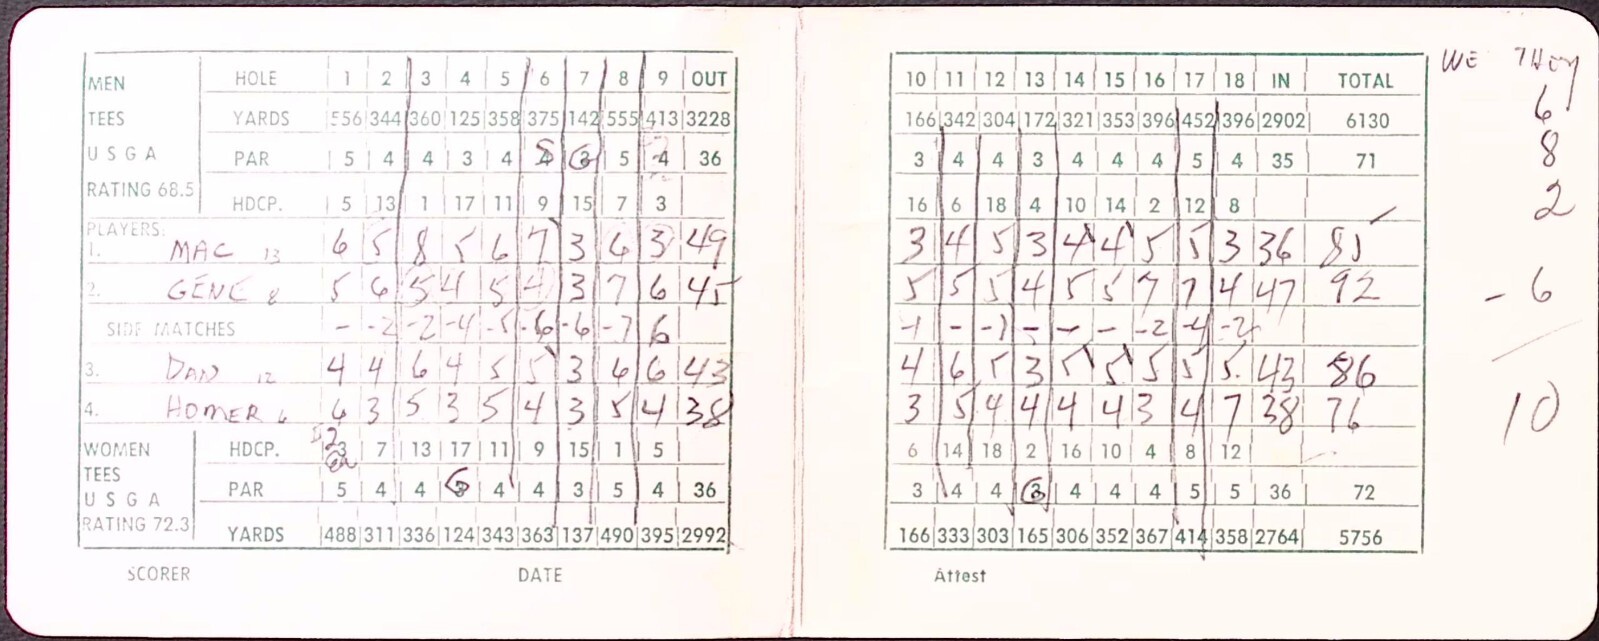 MEN HOLE 1 2 3 4 5 6 7 8 9 OUT
TEES YARDS 556 344 360 125 358 375 142 555 413 3228
USGA PAR 5 4 4 3 4 4 3 5 4 36
RATING 68.5 HDCP. 5 13 1 17 11 9 15 7 3
PLAYERS:
1. MAC 13 6 5 8 5 6 7 3 6 3 49
2. GENE 8 5 6 5 4 5 4 3 7 6 45
SIDE MATCHES - -2 -2 -4 -5 -6 -6 -7 6
3. DAN 12 4 4 6 4 5 5 3 6 6 43
4. HOMER 6 6 3 5 3 5 4 3 5 4 38
WOMEN HDCP. 3 7 13 17 11 9 15 1 5
TEES
USGA PAR 5 4 4 3 4 4 3 5 4 36
RATING 72.3 YARDS 488 311 336 124 343 363 137 490 395 2992
SCORER DATE
10 11 12 13 14 15 16 17 18 IN TOTAL
166 342 304 172 321 353 396 452 396 2902 6130
3 4 4 3 4 4 4 5 4 35 71
16 6 18 4 10 14 2 12 8
3 4 5 3 4 4 5 5 3 36 85
5 5 5 4 5 5 7 7 4 47 92
-1 - -1 - - - -2 -4 -2
4 6 5 3 5 5 5 5 5 43 86
3 5 4 4 4 4 3 4 7 38 76
6 14 18 2 16 10 4 8 12
3 4 4 3 4 4 4 5 5 36 72
166 333 303 165 306 352 367 414 358 2764 5756
Attest
WE THEY
6
8
2
- 6
10